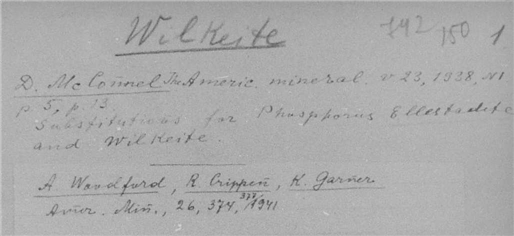 Wilkeite 792 150 1
D. McConnel The Americ. mineral. v 23, 1938, N1
p. 5, p. 13.
Substitutions for Phosphorus Ellestadite
and Wilkeite.
A Woodford, R. Crippen, K. Garner
Amer. Min., 26, 374, 1941